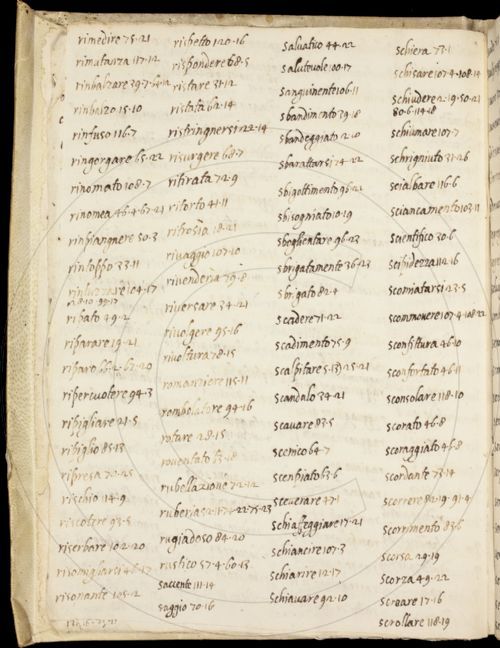 rimedire 75·21
rimutanza 117·12
rinbalzare 39·7·
rinbalzo 15·10
rinfuso 116·7
ringorgare 65·22
rinomato 108·7
rinomea 46·4·67·21
rinpiangnere 50·3
rintoppo 33·11
104·17
ribato 49·2
riparare 19·21
riparo
ripercuotere 94·3
ripigliare 21·5
ripiglio 85·13
ripresa 70·25
rischio 114·9
riscotere 93·5
riserbare 10·2·20
risomigliarsi
risonante 105·2
rispetto 120·16
rispondere 68·5
ristare 31·12
ristata 62·14
ristringnersi 122·14
risurgere 68·7
ritirata 72·9
ritorto 41·11
ritrosia 18·21
rivaggio 107·10
rivenderia 79·8
riversare 34·21
rivolgere 95·16
rivoltura 78·15
romanziere 115·11
rombolatore 94·16
rotare 28·15
roventato 63·18
rubellazione 72·12
ruberia 52·17·
rugiadoso 84·20
rustico 57·4·60·13
saccente 111·14
saggio 70·16
salvatico 44·22
salutevole 00·17
sanguinente 106·11
sbandimento 39·18
sbandeggiato 2·10
sbarattarsi 74·22
sbigottimento 96·22
sbisogniato 10·19
sboglientare 96·23
sbrigatamento 36·23
sbrigato 82·4
scadere 71·22
scadimento 75·9
scalpitare 5·13·25·21
scandalo 34·21
scavare 83·5
scenico 64·7
scenpiato 63·6
sceverare 47·1
schiaffeggiare 17·21
schiancire 107·3
schiarire 12·17
schiavare 92·10
schiera 77·1
schisare 107·4·108·14
schiudere 2·19·50·21
80·6·114·18
schiumare 107·7
schrignuto 31·26
scialbare 116·6
sciancamento 103·11
scientifico 30·6
scipidezza 112·16
scomiatarsi 23·5
scommovere 107·4·108·22
sconfittura 46·10
sconfortato 46·11
consolare 118·10
scorato 46·8
scoraggiato 46·8
scordante 73·14
scorrere 82·19·91·4
scorrimento 83·6
scorsa 29·19
scorza 49·22
screare 17·16
scrollare 118·19